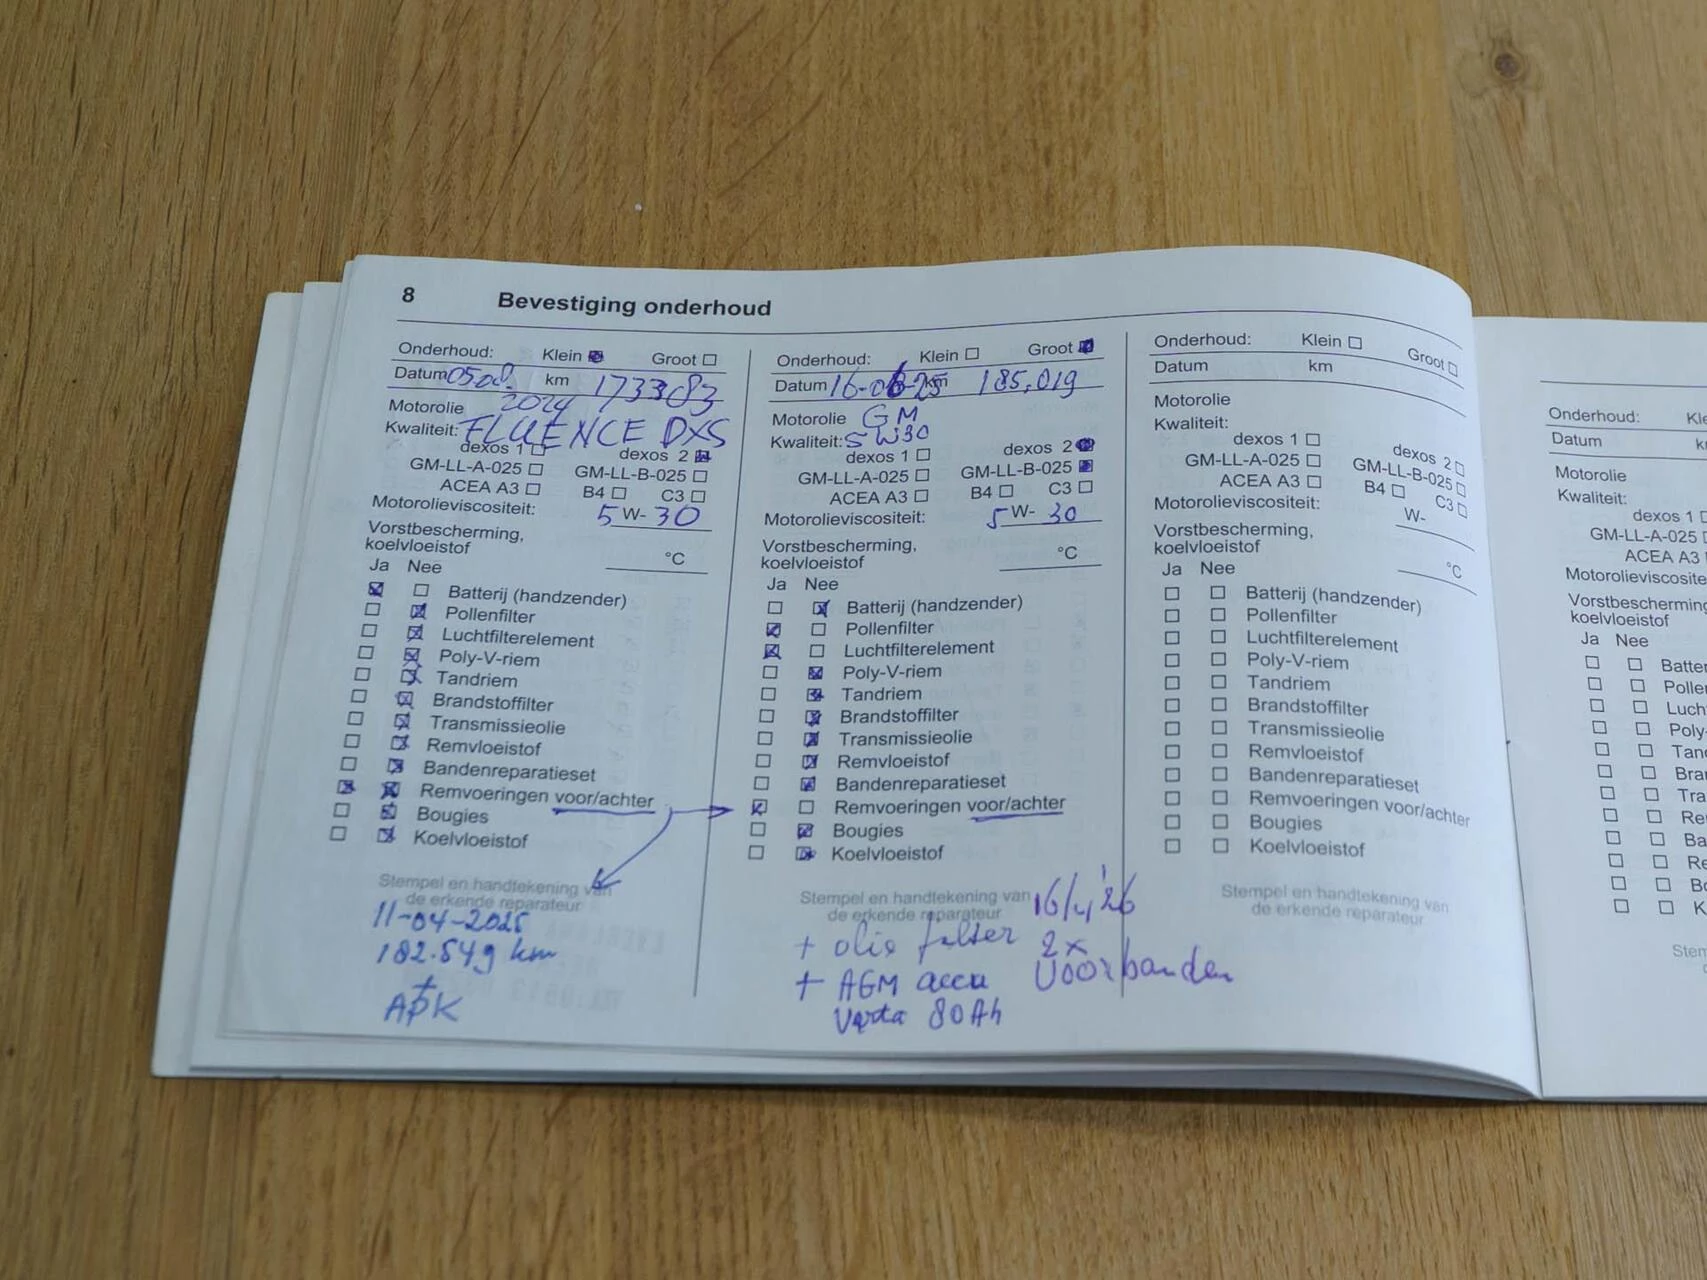 8 Bevestiging onderhoud
Onderhoud: Klein Groot
Datum 05 08. 2024 km 173383
Motorolie
Kwaliteit: FLUENCE DXS
dexos 1 dexos 2
GM-LL-A-025 GM-LL-B-025
ACEA A3 B4 C3
Motorolieviscositeit: 5 W- 30
Vorstbescherming,
koelvloeistof °C
Ja Nee
Batterij (handzender)
Pollenfilter
Luchtfilterelement
Poly-V-riem
Tandriem
Brandstoffilter
Transmissieolie
Remvloeistof
Bandenreparatieset
Remvoeringen voor/achter
Bougies
Koelvloeistof
Stempel en handtekening van
de erkende reparateur
11-04-2025
182.549 km
+
APK
Onderhoud: Klein Groot
Datum 16-06-25 km 185,019
Motorolie GM
Kwaliteit: 5W30
dexos 1 dexos 2
GM-LL-A-025 GM-LL-B-025
ACEA A3 B4 C3
Motorolieviscositeit: 5 W- 30
Vorstbescherming,
koelvloeistof °C
Ja Nee
Batterij (handzender)
Pollenfilter
Luchtfilterelement
Poly-V-riem
Tandriem
Brandstoffilter
Transmissieolie
Remvloeistof
Bandenreparatieset
Remvoeringen voor/achter
Bougies
Koelvloeistof
Stempel en handtekening van
de erkende reparateur
+ olie filter
+ AGM accu
Varta 80Ah
16/4/'26
2x
Voorbanden
Onderhoud: Klein Groot
Datum km
Motorolie
Kwaliteit:
dexos 1 dexos 2
GM-LL-A-025 GM-LL-B-025
ACEA A3 B4 C3
Motorolieviscositeit: W-
Vorstbescherming,
koelvloeistof °C
Ja Nee
Batterij (handzender)
Pollenfilter
Luchtfilterelement
Poly-V-riem
Tandriem
Brandstoffilter
Transmissieolie
Remvloeistof
Bandenreparatieset
Remvoeringen voor/achter
Bougies
Koelvloeistof
Stempel en handtekening van
de erkende reparateur
Onderhoud: Kle
Datum k
Motorolie
Kwaliteit:
dexos 1
GM-LL-A-025
ACEA A3
Motorolieviscosite
Vorstbescherming
koelvloeistof
Ja Nee
Batter
Polle
Luch
Poly-
Tand
Bra
Tra
Re
Ba
Re
Bo
K
Stem